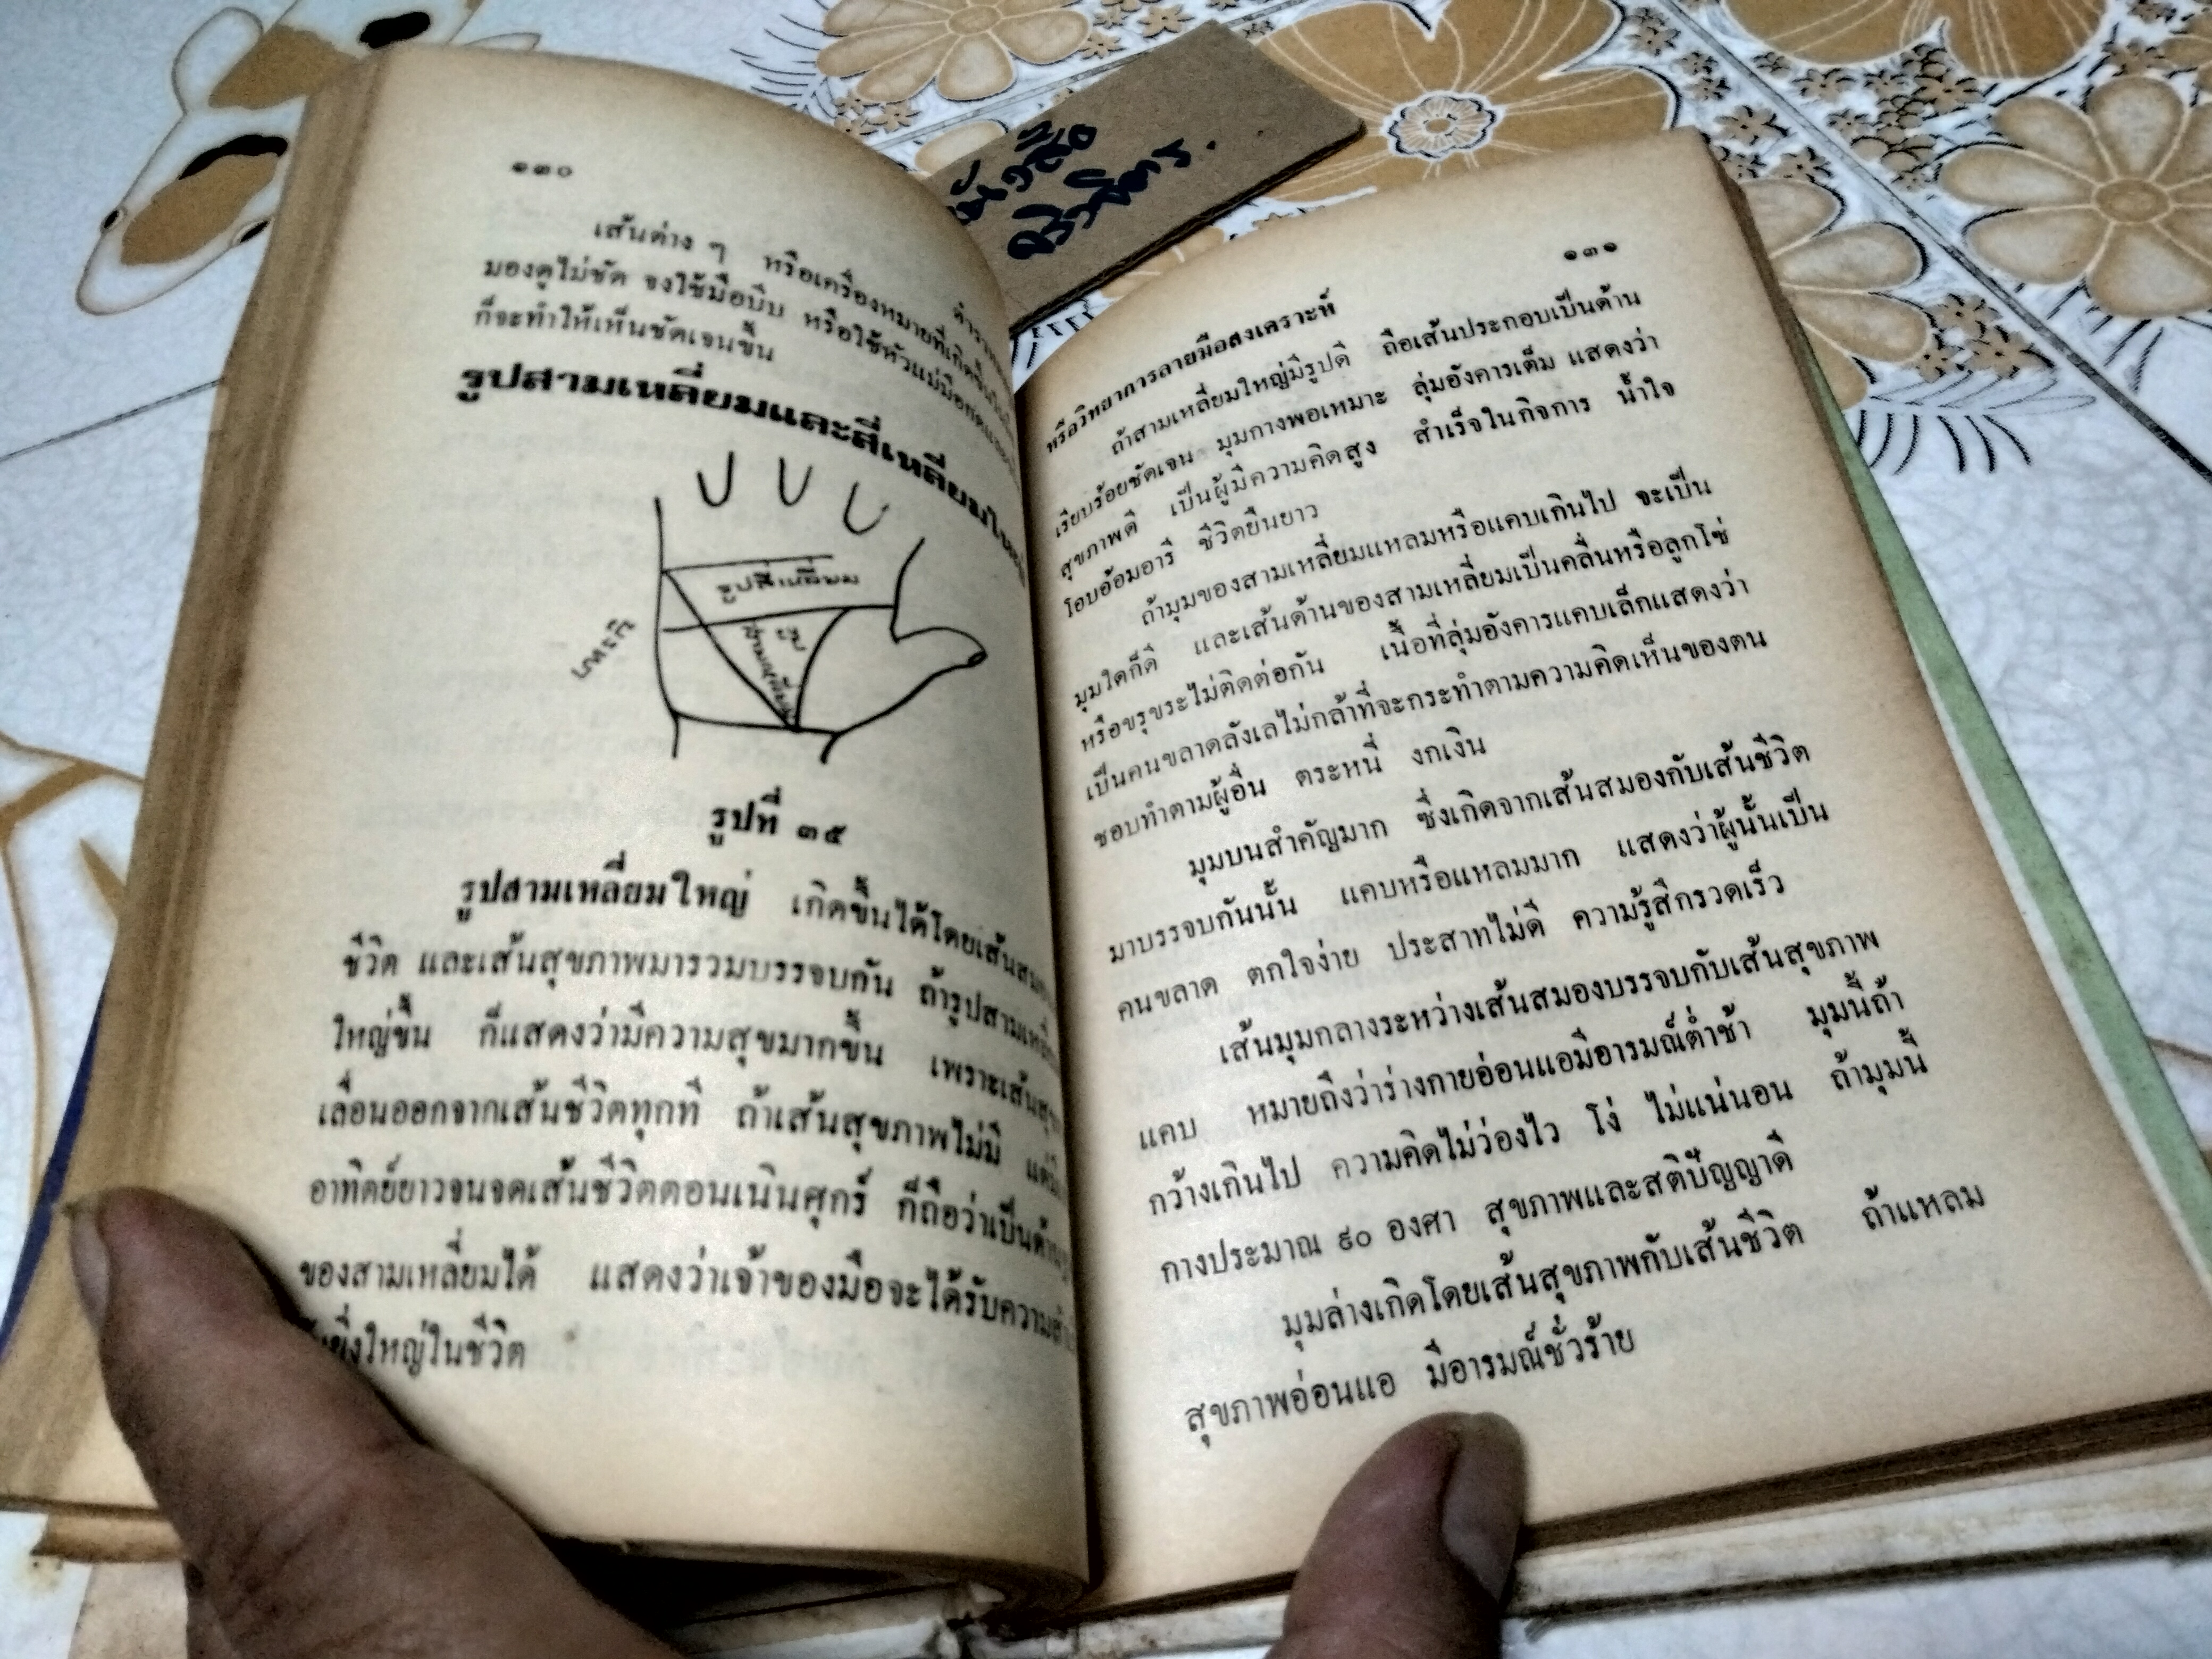 ๑๓๐
ตำรา
เส้นต่าง ๆ หรือเครื่องหมายที่เกิดขึ้น
มองดูไม่ชัด จงใช้มือบีบ หรือใช้หัวแม่มือกด
ก็จะทำให้เห็นชัดเจนขึ้น
รูปสามเหลี่ยมและสี่เหลี่ยมใหญ่
รูปสี่เหลี่ยม
รูป
สามเหลี่ยม
รูปที่ ๓๕
รูปสามเหลี่ยมใหญ่ เกิดขึ้นได้โดยเส้นสมอง
ชีวิต และเส้นสุขภาพมารวมบรรจบกัน ถ้ารูปสามเหลี่ยม
ใหญ่ขึ้น ก็แสดงว่ามีความสุขมากขึ้น เพราะเส้นสุข
เลื่อนออกจากเส้นชีวิตทุกที ถ้าเส้นสุขภาพไม่มี แต่มี
อาทิตย์ยาวจนจดเส้นชีวิตตอนเนินศุกร์ ก็ถือว่าเป็นด้าน
ของสามเหลี่ยมได้ แสดงว่าเจ้าของมือจะได้รับความสำ
ยิ่งใหญ่ในชีวิต
๑๓๑
หรือวิทยาการลายมือสงเคราะห์
ถ้าสามเหลี่ยมใหญ่มีรูปดี ถือเส้นประกอบเป็นด้าน
เรียบร้อยชัดเจน มุมกางพอเหมาะ ลุ่มอังคารเต็ม แสดงว่า
สุขภาพดี เป็นผู้มีความคิดสูง สำเร็จในกิจการ น้ำใจ
โอบอ้อมอารี ชีวิตยืนยาว
ถ้ามุมของสามเหลี่ยมแหลมหรือแคบเกินไป จะเป็น
มุมใดก็ดี และเส้นด้านของสามเหลี่ยมเป็นคลื่นหรือลูกโซ่
หรือขรุขระไม่ติดต่อกัน เนื้อที่ลุ่มอังคารแคบเล็กแสดงว่า
เป็นคนขลาดลังเลไม่กล้าที่จะกระทำตามความคิดเห็นของตน
ชอบทำตามผู้อื่น ตระหนี่ งกเงิน
มุมบนสำคัญมาก ซึ่งเกิดจากเส้นสมองกับเส้นชีวิต
มาบรรจบกันนั้น แคบหรือแหลมมาก แสดงว่าผู้นั้นเป็น
คนขลาด ตกใจง่าย ประสาทไม่ดี ความรู้สึกรวดเร็ว
เส้นมุมกลางระหว่างเส้นสมองบรรจบกับเส้นสุขภาพ
แคบ หมายถึงว่าร่างกายอ่อนแอมีอารมณ์ต่ำช้า มุมนี้ถ้า
กว้างเกินไป ความคิดไม่ว่องไว โง่ ไม่แน่นอน ถ้ามุมนี้
กางประมาณ ๙๐ องศา สุขภาพและสติปัญญาดี
มุมล่างเกิดโดยเส้นสุขภาพกับเส้นชีวิต ถ้าแหลม
สุขภาพอ่อนแอ มีอารมณ์ชั่วร้าย